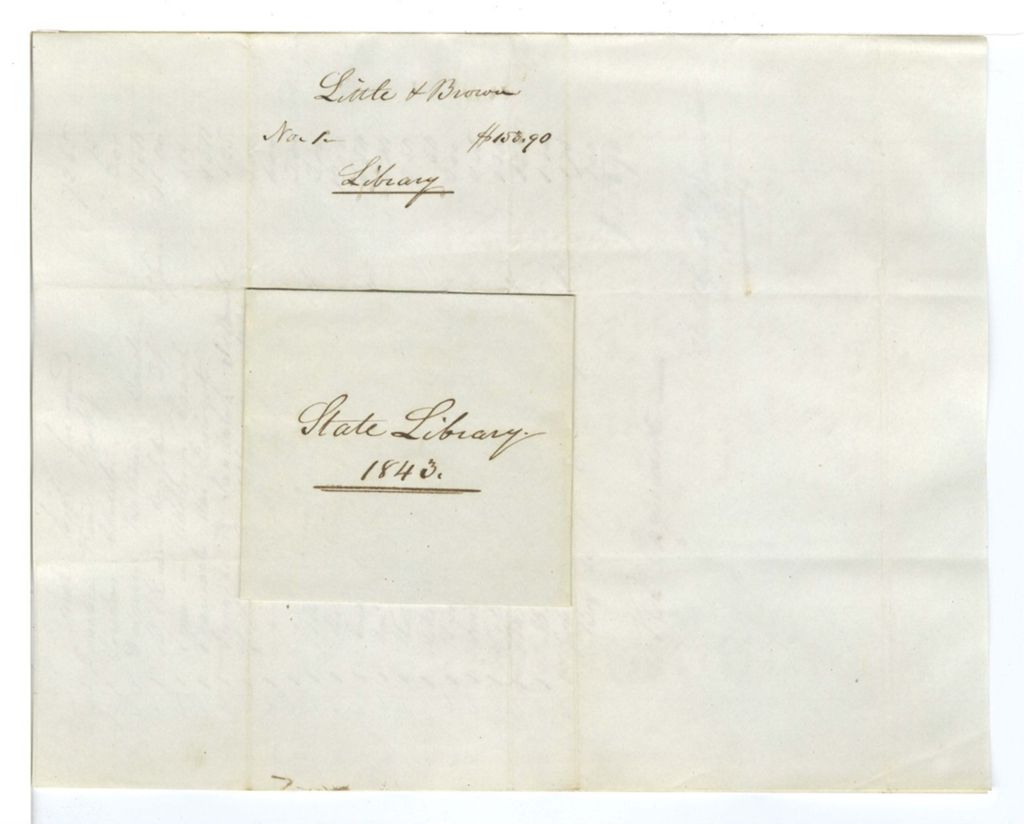 Little & Brown
No. 1.
Library
State Library.
1843.